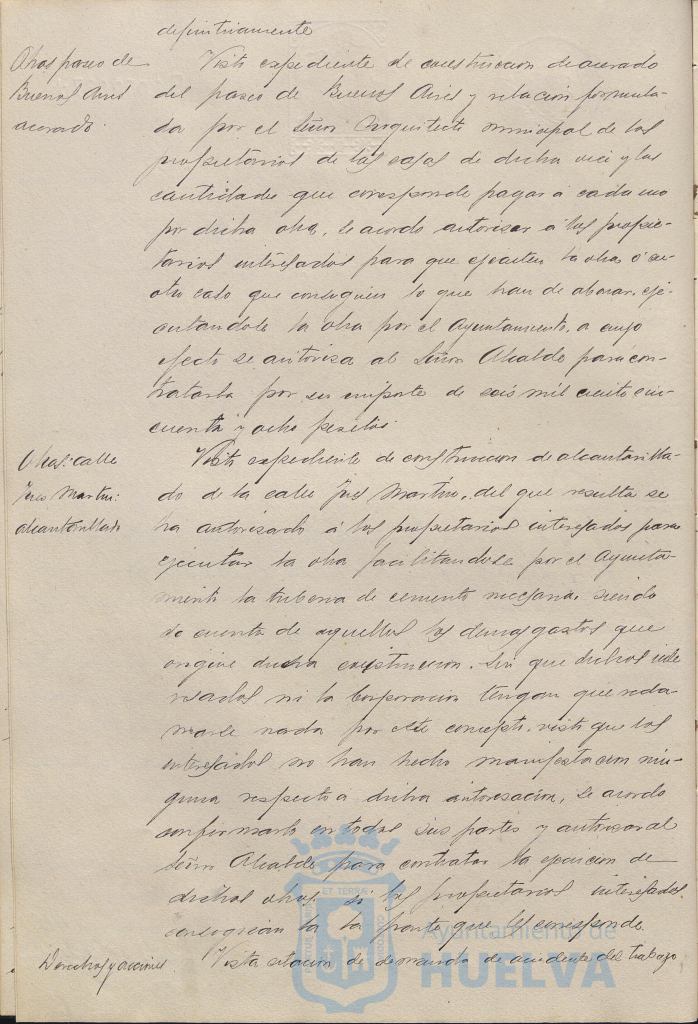 definitivamente
Obras paseo de
Buenos Aires
acerado.
Visto expediente de construccion de acerado
del paseo de Buenos Aires y relación formula-
da por el Señor Arquitecto municipal de los
propietarios de las casas de dicha vía y las
cantidades que corresponde pagar á cada uno
por dicha obra, se acordo autorizar á los propie-
tarios interesados para que ejecuten la obra ó en
otro caso que consignen lo que han de abonar, eje-
cutandose la obra por el Ayuntamiento, a cuyo
efecto se autoriza al Señor Alcalde para con-
tratarla por su importe de seis mil ciento cin-
cuenta y ocho pesetas.
Obras: calle
Ines Martin:
alcantarillado
Visto expediente de construccion de alcantarilla-
do de la calle Ines Martin, del que resulta se
ha autorizado á los propietarios interesados para
ejecutar la obra facilitandose por el Ayunta-
miento la tuberia de cemento necesaria, siendo
de cuenta de aquellos los demas gastos que
origine dicha construccion, sin que dichos inte-
resados ni la Corporacion tengan que recla-
marse nada por este concepto, visto que los
interesados no han hecho manifestacion nin-
guna respecto á dicha autorizacion, se acordo
confirmarlo en todas sus partes y autorizar al
Señor Alcalde para contratar la ejecucion de
dichas obras si los propietarios interesados
consignan la parte que les corresponde.
Derechos y acciones.
Vista citacion de demanda de accidente del trabajo
Ayuntamiento de
HUELVA